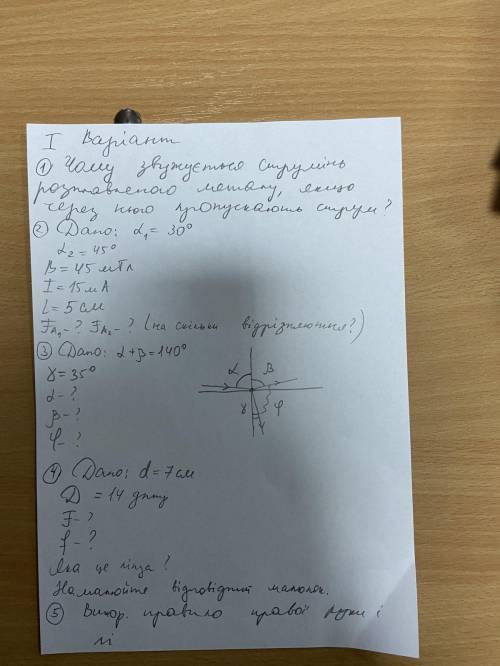 I Варіант
① Чому звужується струмінь
розплавленого металу, якщо
через нього пропускають струм?
② Дано: α₁ = 30°
α₂ = 45°
B = 45 мТл
I = 15 мА
L = 5 см
F_A₁ - ? F_A₂ - ? (на скільки відрізняються?)
③ Дано: α + β = 140°
γ = 35°
α - ?
β - ?
φ - ?
α β
γ φ
④ Дано: d = 7 см
D = 14 дптр
F - ?
f - ?
Яка це лінза?
Намалюйте відповідний малюнок.
⑤ Викор. правило правої руки і
лі